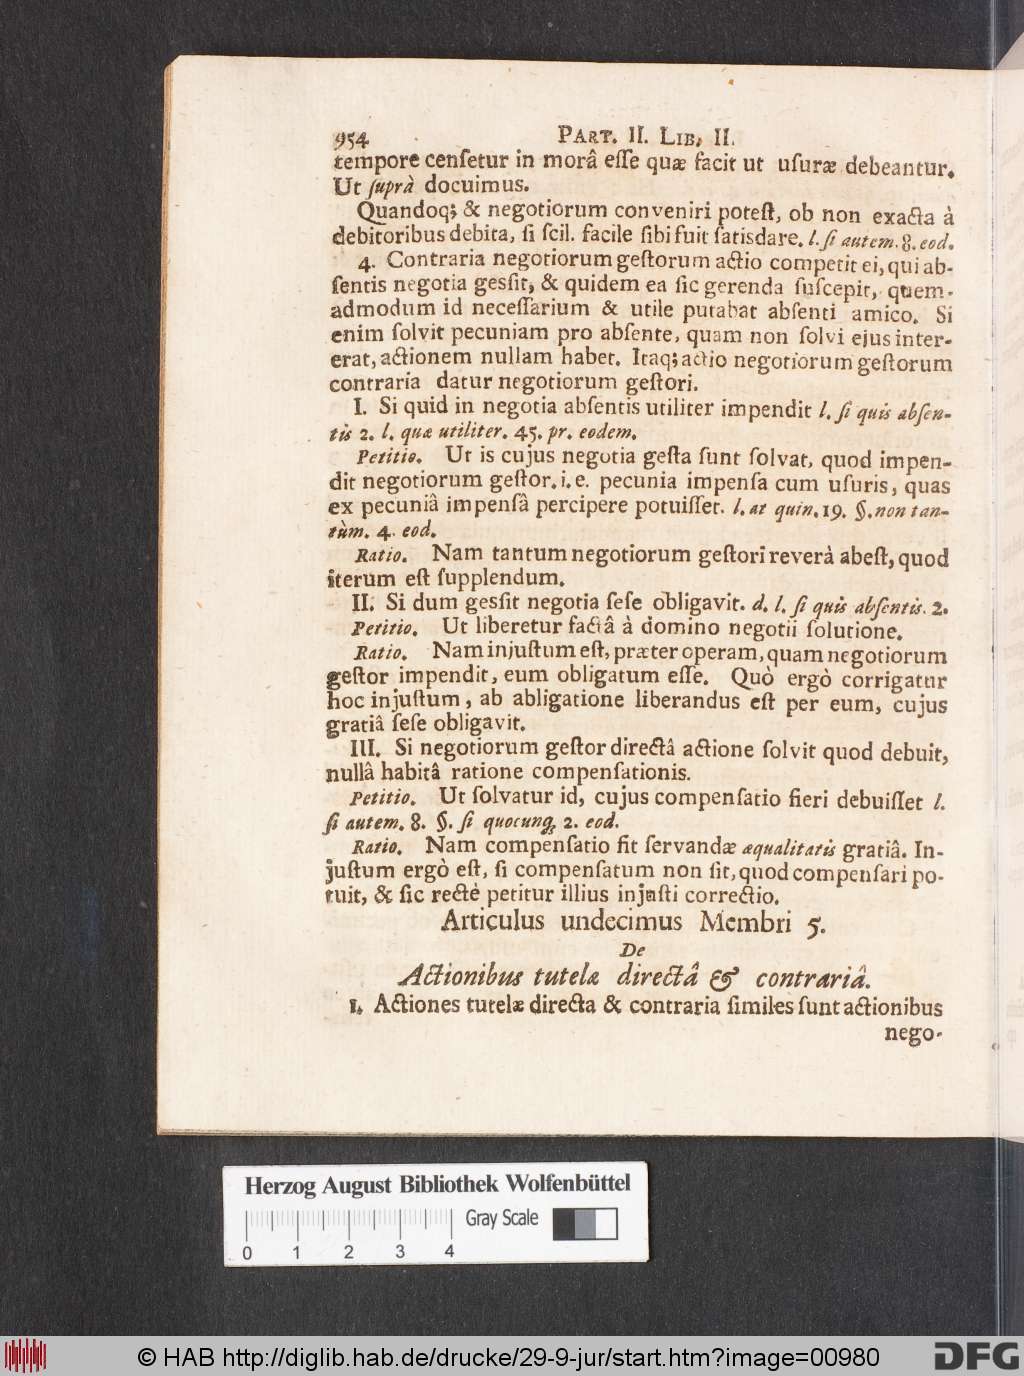 954 PART. II. LIB. II.
tempore cenſetur in morâ eſſe quæ facit ut uſuræ debeantur.
Ut ſuprà docuimus.
Quandoq; & negotiorum conveniri poteſt, ob non exacta à
debitoribus debita, ſi ſcil. facile ſibi fuit ſatisdare. l. ſi autem. 8. eod.
4. Contraria negotiorum geſtorum actio competit ei, qui ab-
ſentis negotia gesſit, & quidem ea ſic gerenda ſuſcepit, quem-
admodum id neceſſarium & utile putabat abſenti amico. Si
enim ſolvit pecuniam pro abſente, quam non ſolvi ejus inter-
erat, actionem nullam habet. Itaq; actio negotiorum geſtorum
contraria datur negotiorum geſtori.
I. Si quid in negotia abſentis utiliter impendit l. ſi quis abſen-
tis 2. l. quæ utiliter. 45. pr. eodem.
Petitio. Ut is cujus negotia geſta ſunt ſolvat, quod impen-
dit negotiorum geſtor. i. e. pecunia impenſa cum uſuris, quas
ex pecuniâ impenſâ percipere potuiſſet. l. at quin. 19. §. non tan-
tùm. 4. eod.
Ratio. Nam tantum negotiorum geſtori reverà abeſt, quod
iterum eſt ſupplendum.
II. Si dum gesſit negotia ſeſe obligavit. d. l. ſi quis abſentis. 2.
Petitio. Ut liberetur factâ à domino negotii ſolutione.
Ratio. Nam injuſtum eſt, præter operam, quam negotiorum
geſtor impendit, eum obligatum eſſe. Quò ergò corrigatur
hoc injuſtum, ab abligatione liberandus eſt per eum, cujus
gratiâ ſeſe obligavit.
III. Si negotiorum geſtor directâ actione ſolvit quod debuit,
nullâ habitâ ratione compenſationis.
Petitio. Ut ſolvatur id, cujus compenſatio fieri debuiſſet l.
ſi autem. 8. §. ſi quocunq; 2. eod.
Ratio. Nam compenſatio fit ſervandæ æqualitatis gratiâ. In-
juſtum ergò eſt, ſi compenſatum non ſit, quod compenſari po-
tuit, & ſic rectè petitur illius injuſti correctio.
Articulus undecimus Membri 5.
De
Actionibus tutelæ directâ & contrariâ.
1. Actiones tutelæ directa & contraria ſimiles ſunt actionibus
nego-
Herzog August Bibliothek Wolfenbüttel
Gray Scale
0 1 2 3 4
© HAB http://diglib.hab.de/drucke/29-9-jur/start.htm?image=00980
DFG